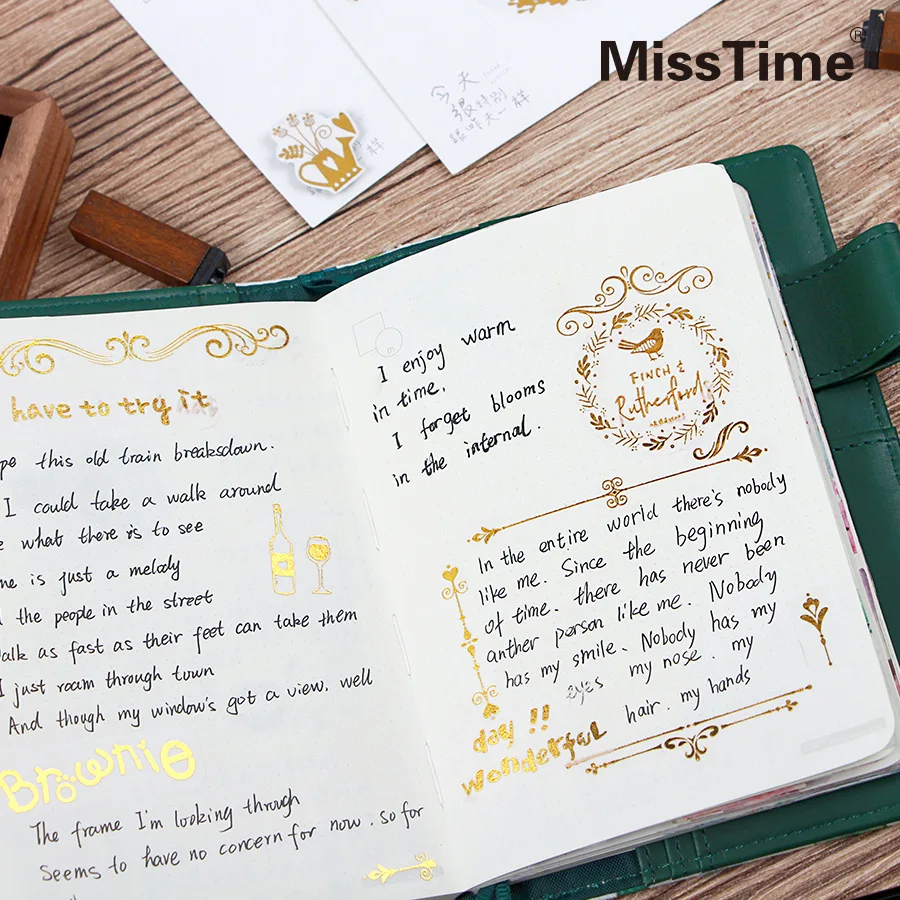 MissTime®
今天
很特别
跟昨天一样
样
have to try it
pe this old train breaksdown.
I could take a walk around
what there is to see
me is just a melody
the people in the street
alk as fast as their feet can take them
I just roam through town
And though my window's got a view. well
Brownie
The frame I'm looking through
Seems to have no concern for now. so for
I enjoy warm
in time.
I forget blooms
in the internal.
FINCH &
Rutherford
In the entire world there's nobody
like me. Since the beginning
of time. there has never been
anther person like me. Nobody
has my smile. Nobody has my
eyes my nose. my
hair. my hands
day!!
wonderful